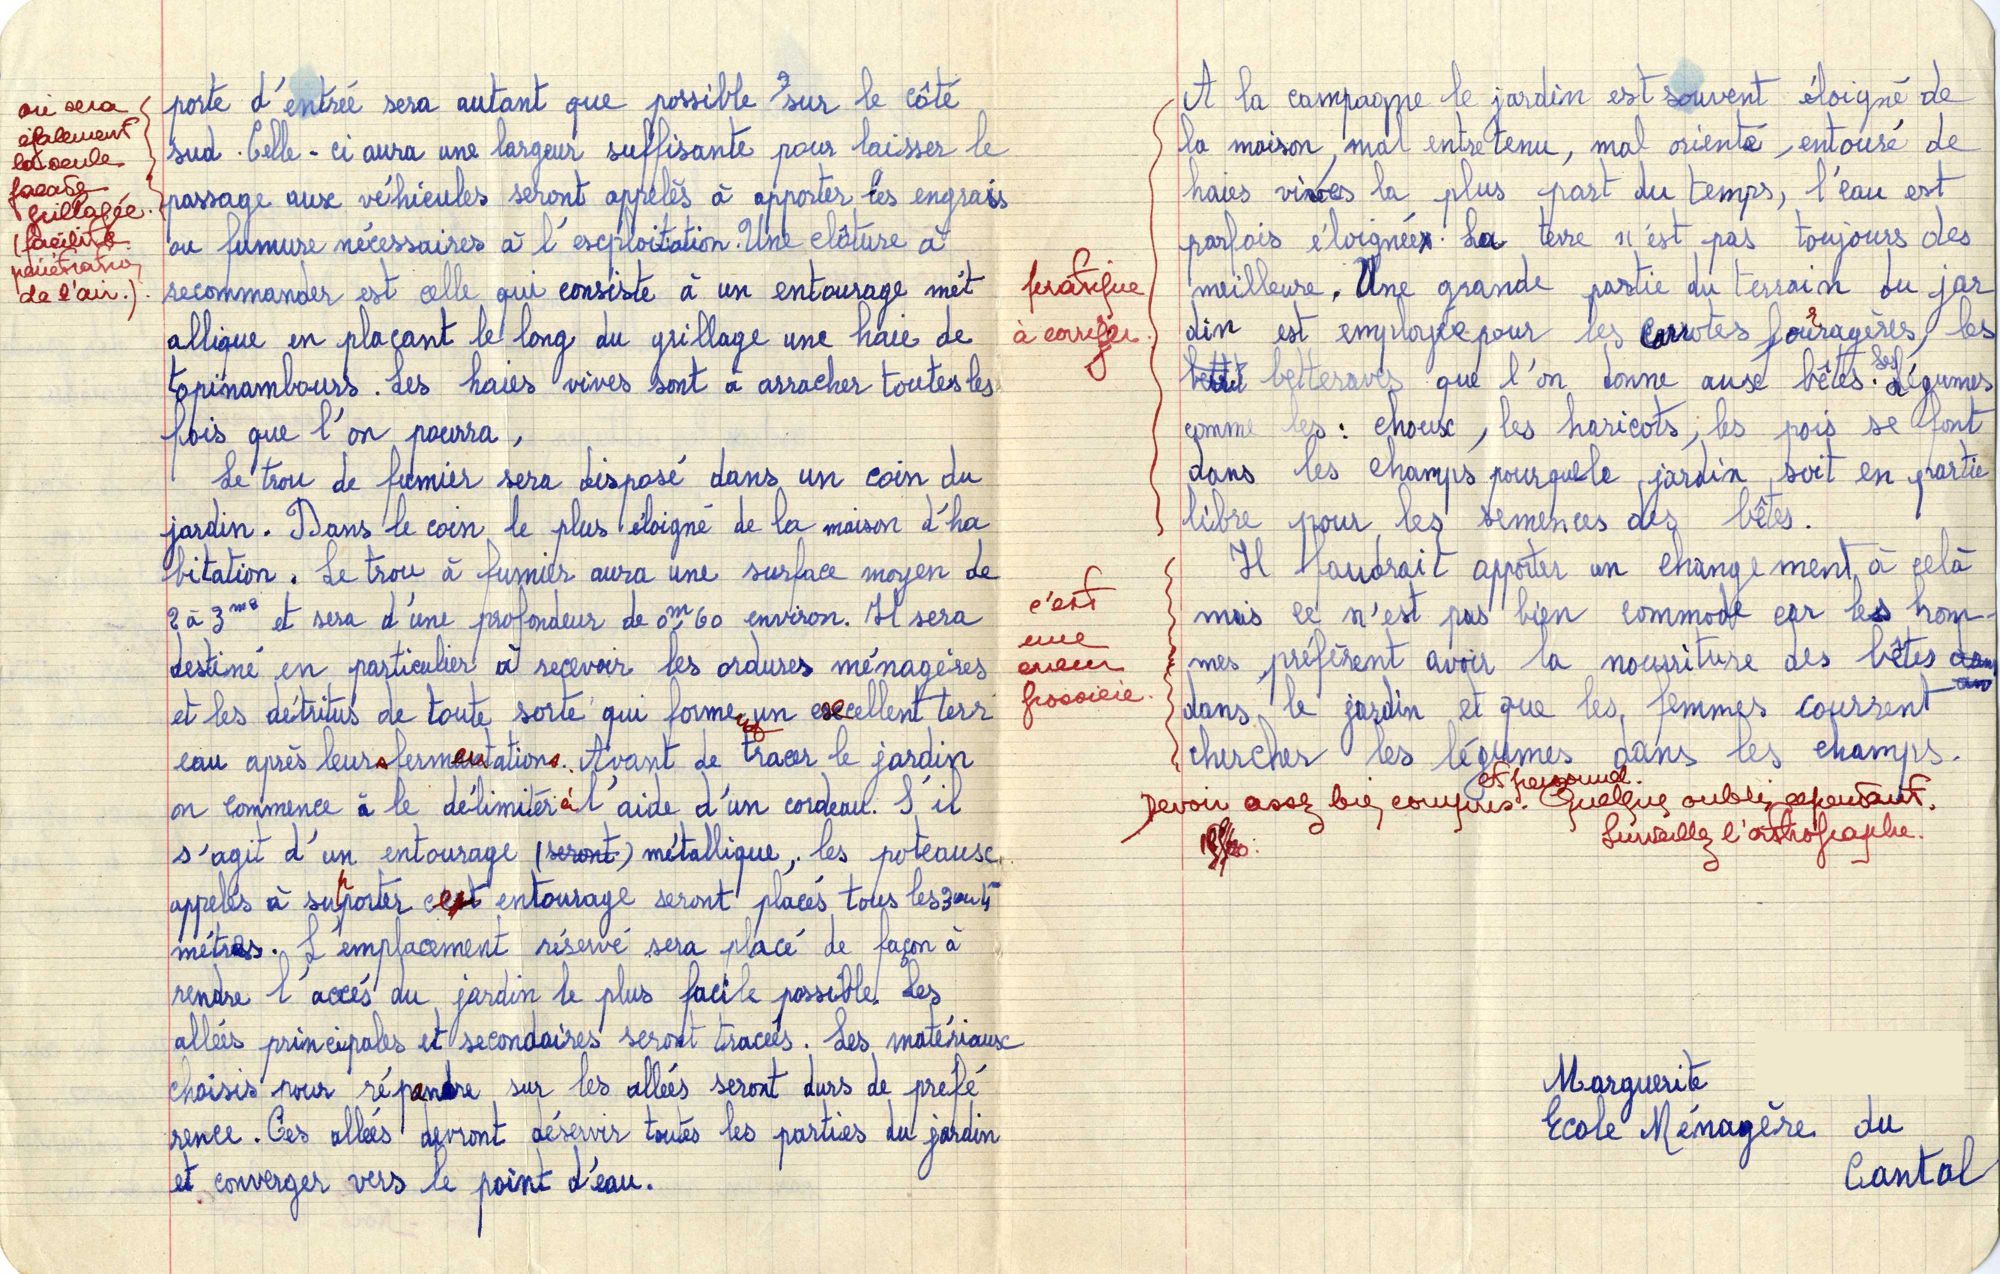 où sera
également
la seule
façade
grillagée.
(facilite
pénétration
de l'air.)
porte d'entrée sera autant que possible sur le côté
sud. Celle-ci aura une largeur suffisante pour laisser le
passage aux véhicules seront appelés à apporter les engrais
ou fumure nécessaires à l'exploitation. Une clôture à
recommander est celle qui consiste à un entourage mét
allique en plaçant le long du grillage une haie de
topinambours. Les haies vives sont à arracher toutes les
fois que l'on pourra,
Le trou de fumier sera disposé dans un coin du
jardin. Dans le coin le plus éloigné de la maison d'ha
bitation. Le trou à fumier aura une surface moyen de
2 à 3 m² et sera d'une profondeur de 0m60 environ. Il sera
destiné en particulier à recevoir les ordures ménagères
et les détritus de toute sorte qui forme un excellent terr
eau après leurs fermentations. Avant de tracer le jardin
on commence à le délimiter à l'aide d'un cordeau. S'il
s'agit d'un entourage (seront) métallique, les poteaux
appelés à supporter cet entourage seront placés tous les 3 ou 4
mètres. L'emplacement réservé sera placé de façon à
rendre l'accés du jardin le plus facile possible. Les
allées principales et secondaires seront tracées. Les matériaux
choisis pour répandre sur les allées seront durs de préfé
rence. Ces allées devront déservir toutes les parties du jardin
et converger vers le point d'eau.
pratique
à corriger
c'est
une
erreur
grossière.
A la campagne le jardin est souvent éloigné de
la maison, mal entretenu, mal orienté, entouré de
haies vives la plus part du temps, l'eau est
parfois éloignée. La terre n'est pas toujours des
meilleure. Une grande partie du terrain du jar
din est employée pour les carrotes fourragères, les
betteraves que l'on donne aux bêtes. Les légumes
comme les: choux, les haricots, les pois se font
dans les champs pour que le jardin soit en partie
libre pour les semences des bêtes.
Il faudrait apporter un changement à celà
mais ce n'est pas bien commode car les hom-
mes préfèrent avoir la nourriture des bêtes
dans le jardin et que les femmes courrent
chercher les légumes dans les champs.
et personnel.
Devoir assez bien compris. Quelques oublis cependant.
Surveillez l'orthographe.
Marguerite
Ecole Ménagère du
Cantal